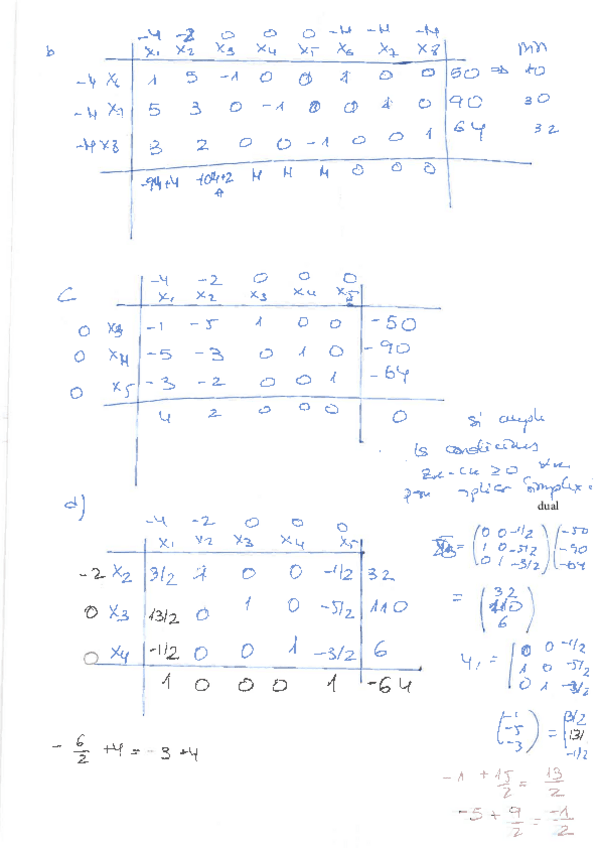 b
-4 -2 0 0 0 -M -M -M
x₁ x₂ x₃ x₄ x₅ x₆ x₇ x₈ min
-M x₆ 1 5 -1 0 0 1 0 0 50 ⇒ 10
-M x₇ 5 3 0 -1 0 0 1 0 90 30
-M x₈ 3 2 0 0 -1 0 0 1 64 32
-9M+4 -10M+2 M M M 0 0 0
c
-4 -2 0 0 0
x₁ x₂ x₃ x₄ x₅
0 x₃ -1 -5 1 0 0 -50
0 x₄ -5 -3 0 1 0 -90
0 x₅ -3 -2 0 0 1 -64
4 2 0 0 0 0
si cumple
las condiciones
zₖ-cₖ ≥0 ∀k
para aplicar Simplex
dual
d)
-4 -2 0 0 0
x₁ x₂ x₃ x₄ x₅
-2 x₂ 3/2 1 0 0 -1/2 32
0 x₃ 13/2 0 1 0 -5/2 110
0 x₄ -1/2 0 0 1 -3/2 6
1 0 0 0 1 -64
- 6/2 +4 = -3 +4
= (0 0 -1/2) (-50)
(1 0 -5/2) (-90)
(0 1 -3/2) (-64)
= (32)
(110)
(6)
y₁ = (0 0 -1/2
1 0 -5/2
0 1 -3/2
(-1) = (3/2
(-5) (13/
(-3) (-1/2
-1 + 15/2 = 13/2
-5 + 9/2 = -1/2